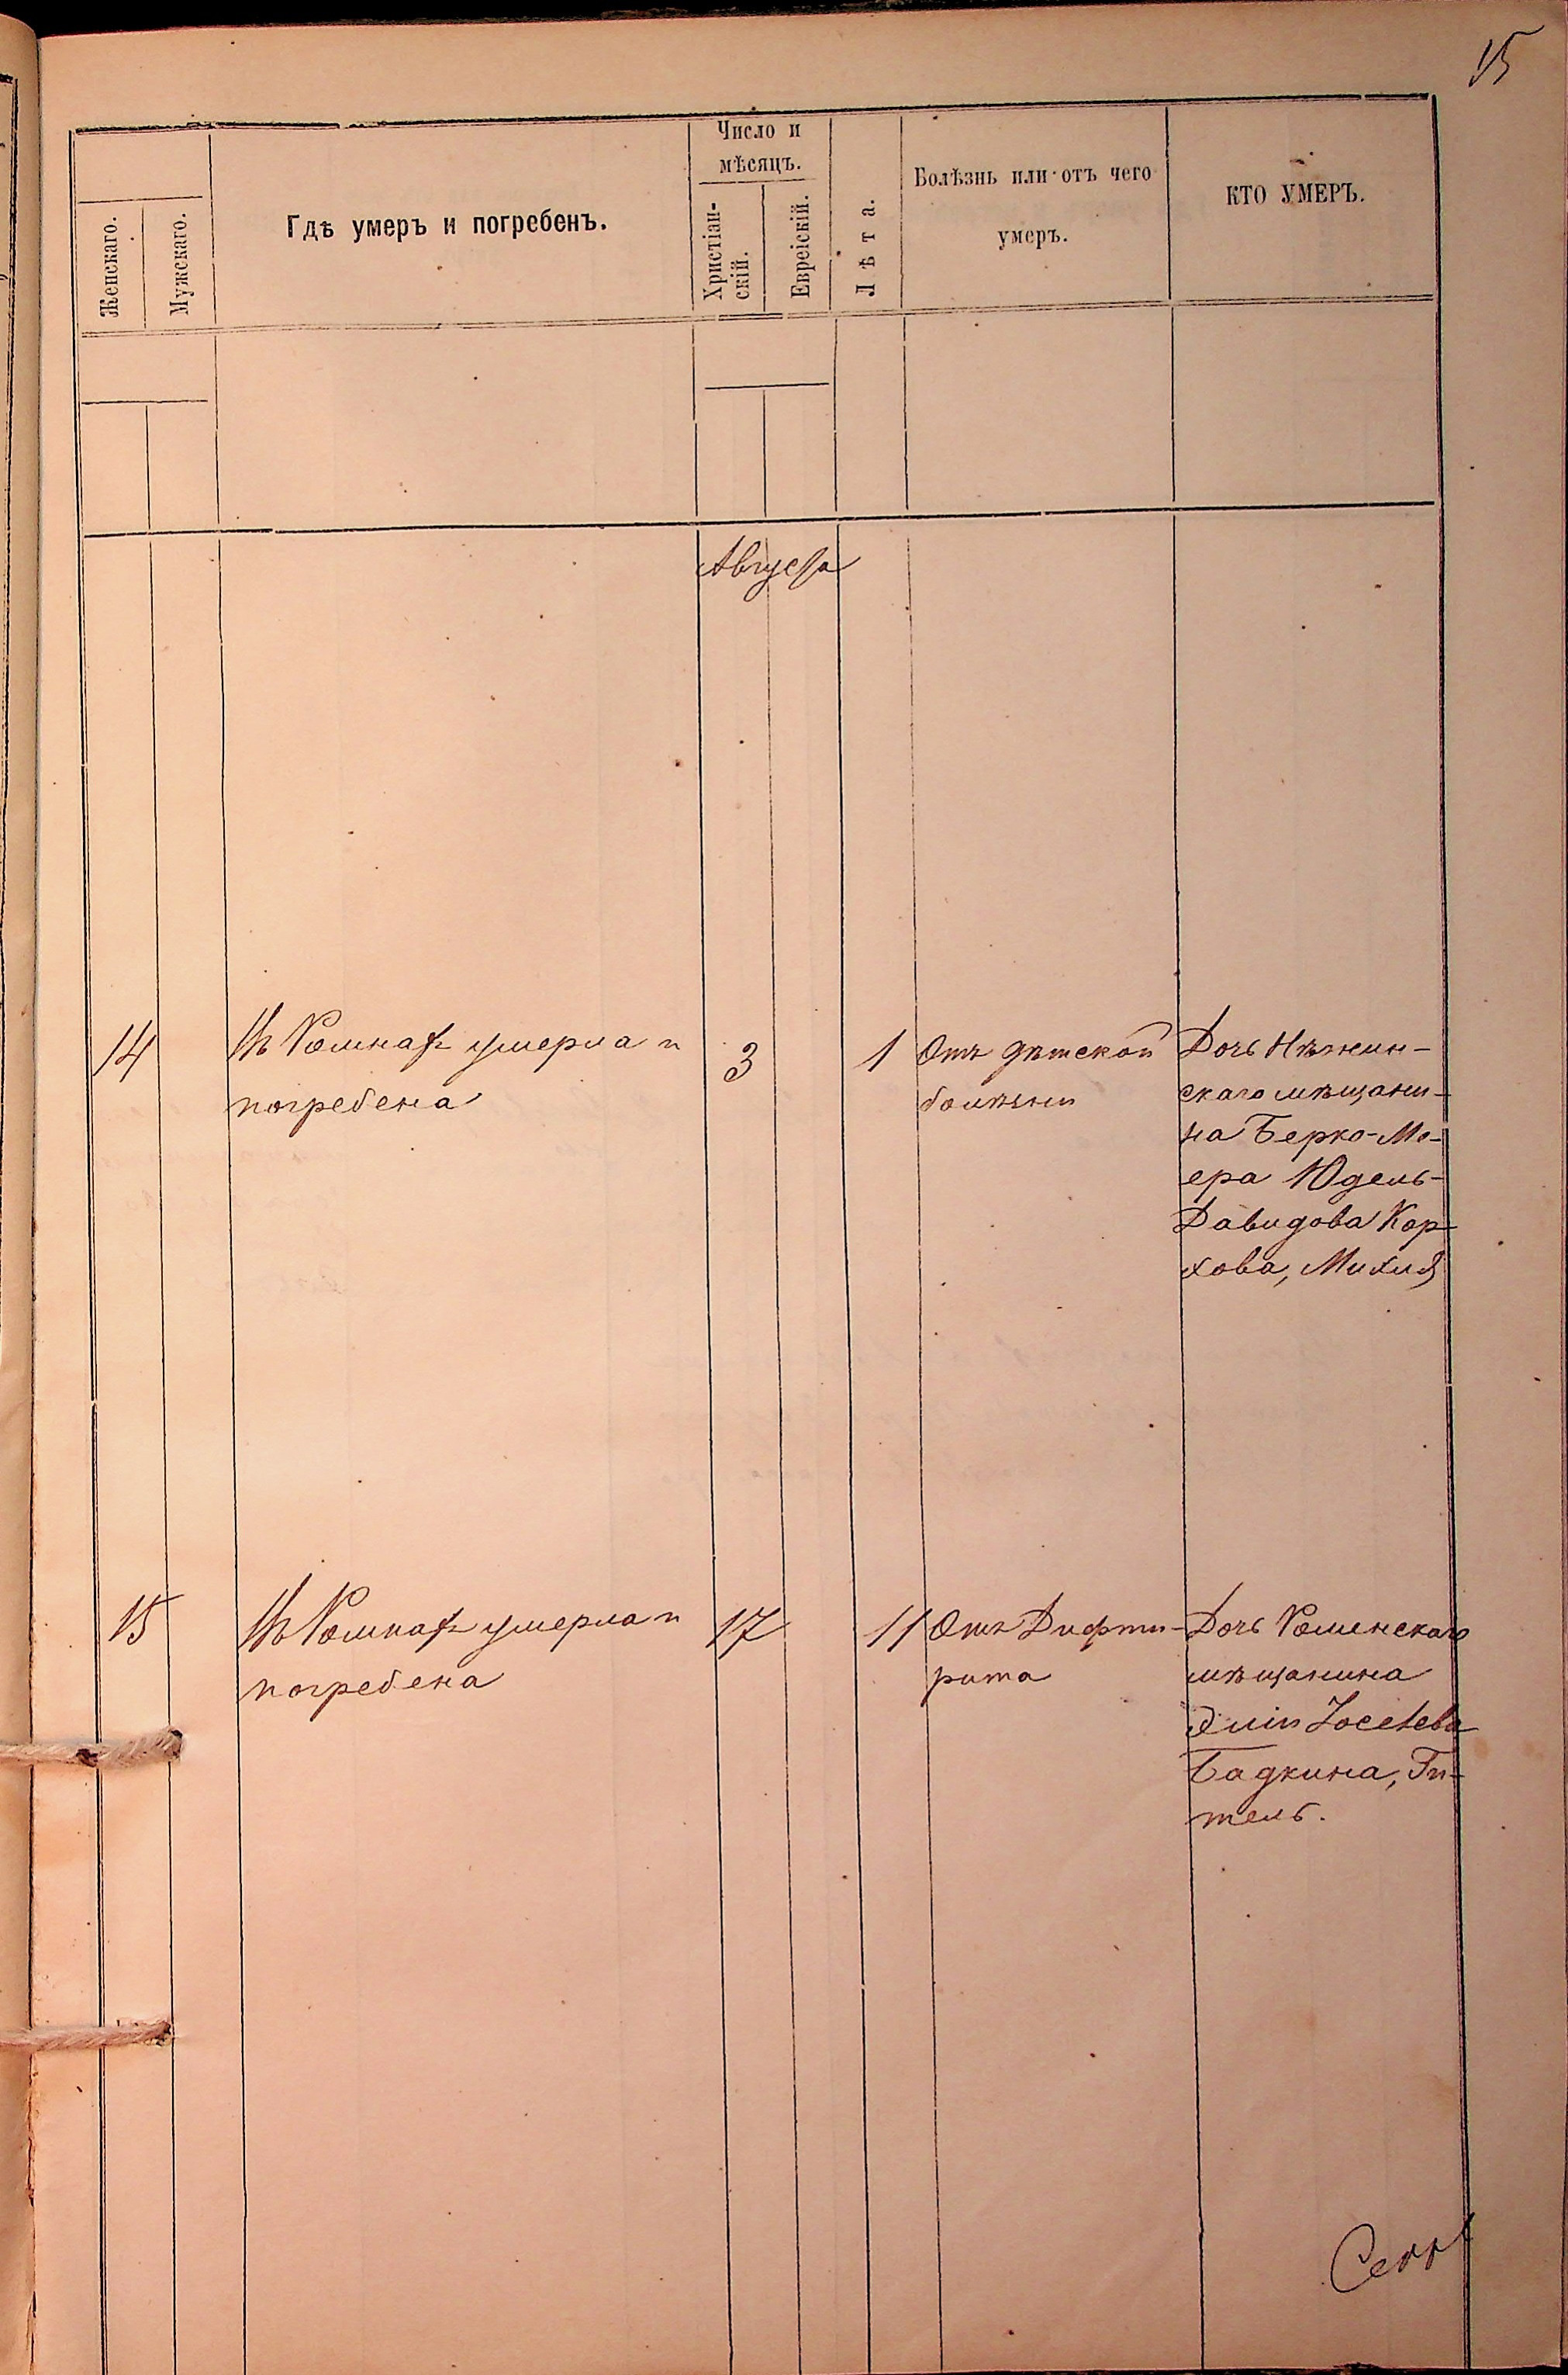 15
Число и
мѣсяцъ.
Женскаго.
Мужскаго.
Гдѣ умеръ и погребенъ.
Христіан-
скій.
Еврейскій.
Лѣта.
Болѣзнь или отъ чего
умеръ.
КТО УМЕРЪ.
Августа
14
Въ Ромнахъ умерла и
погребена
3
1
Отъ дѣтской
болѣзни
Дочь Нѣжин-
скаго мѣщани-
на Берко-Ме-
ера Юдель-
Давидова Кор-
хова,
15
Въ Ромнахъ умерла и
погребена
17
11
Отъ Дифти-
рита
Дочь Роменскаго
мѣщанина
Эліи Іосева
Бадкина, Ги-
тель.